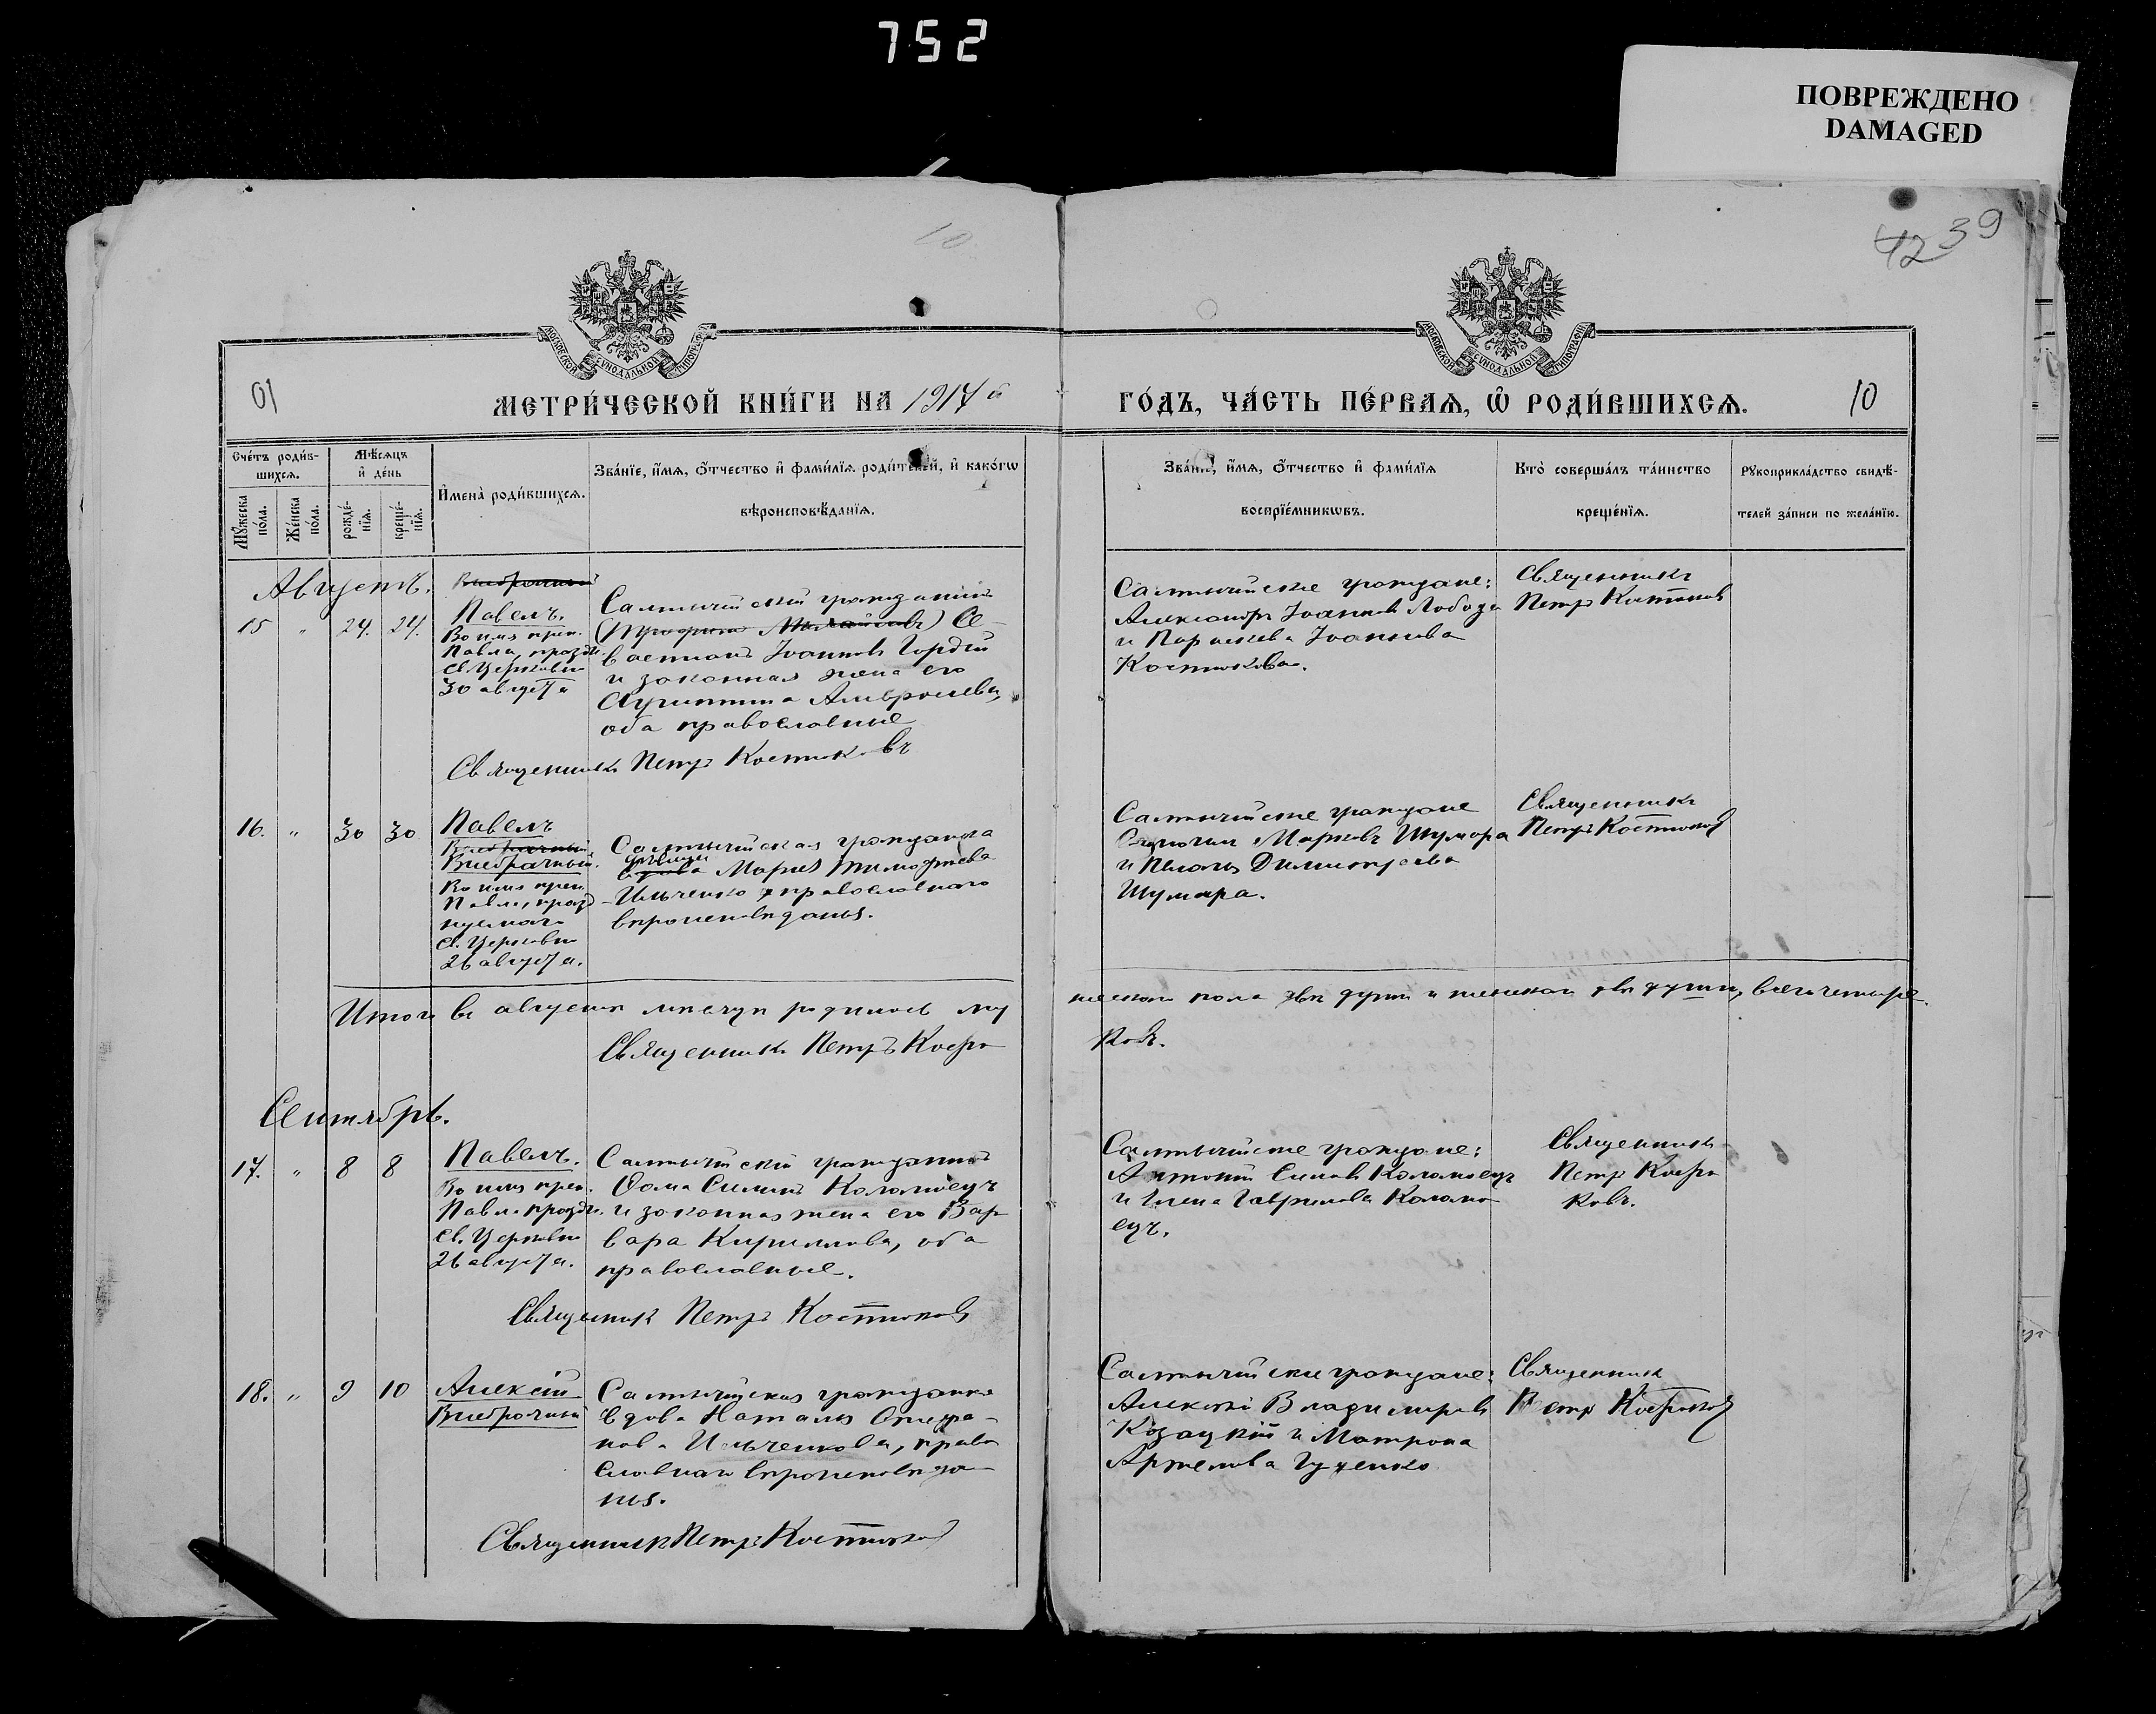 752
ПОВРЕЖДЕНО
DAMAGED
10
42 39
МОСКОВСКОЙ СѴНОДАЛЬНОЙ ТИПОГРАФІИ
МОСКОВСКОЙ СѴНОДАЛЬНОЙ ТИПОГРАФІИ
10
МЕТРИ́ЧЕСКОЙ КНИ́ГИ НА 1917й
ГО́ДЪ, ЧА́СТЬ ПЕ́РВАѦ, Ѡ РОДИ́ВШИХСѦ.
10
Сче́тъ роди́в-
шихсѧ.
Мꙋ́жеска
по́ла.
Же́нска
по́ла.
Мѣ́сѧцъ
и҆ де́нь
рожде́-
нїѧ.
креще́-
нїѧ.
И҆мена̀ роди́вшихсѧ.
Зва́нїе, и҆́мѧ, ѻ҆́тчество и҆ фами́лїѧ роди́телей, и҆ како́гѡ
вѣроисповѣ́данїѧ.
Зва́нїе, и҆́мѧ, ѻ҆́тчество и҆ фами́лїѧ
воспрїе́мникѡвъ.
Кто̀ соверша́лъ та́инство
креще́нїѧ.
Рꙋкоприкла́дство свидѣ́-
телей за́писи по жела́нїю.
Августъ.
Внебрачный
15 " 24. 24.
Павелъ.
Во имя преп.
Павла, праздн.
св. Церковью
30 августа
Салтычійскій гражданинъ
Се-
вастіанъ Іоанновъ Гордій
и законная жена его
Агриппина Амвросіева,
оба православные
Священникъ Петръ Костюковъ
Салтычійскіе граждане:
Александръ Іоанновъ Лобода
и Параскева Іоаннова
Костюкова.
Священникъ
Петръ Костюковъ
16. " 30 30
Павелъ
Внебрачный
Внебрачный.
Во имя преп.
Павла, празд-
нуемаго
св. Церковью
26 августа.
Салтычійская гражданка
девица
вдова Марія Тимофеева
Ильченко православнаго
вероисповеданія.
Салтычійскіе граждане
Марковъ Шумара
и Пелагія Димитріева
Шумара.
Священникъ
Петръ Костюковъ
Итого въ августе месяце родилось му
жескаго пола две души и женскаго две души, всего четыре
Священникъ Петръ Костю
ковъ.
Сентябрь.
17. " 8 8
Павелъ.
Во имя преп.
Павла праздн.
св. Церковью
26 августа.
Салтычійскій гражданинъ
Ѳома Силинъ Коломоецъ
и законная жена его Вар
вара Кириллова, оба
православные.
Священник Петръ Костюковъ
Салтычійскіе граждане:
Антоній Силовъ Коломоецъ
и Елена Гаврилова Коломо
ецъ.
Священникъ
Петръ Костю
ковъ.
18. " 9 10
Алексій
Внебрачный
Салтычійская гражданка
вдова Наталія Стефа-
нова Ильченкова, право
славнаго вероисповеда-
нія.
Священникъ Петръ Костюковъ
Салтычійскіе граждане:
Алексій Владимировъ
Козацкій и Матрона
Артемова Гуженко
Священникъ
Петр Костюковъ